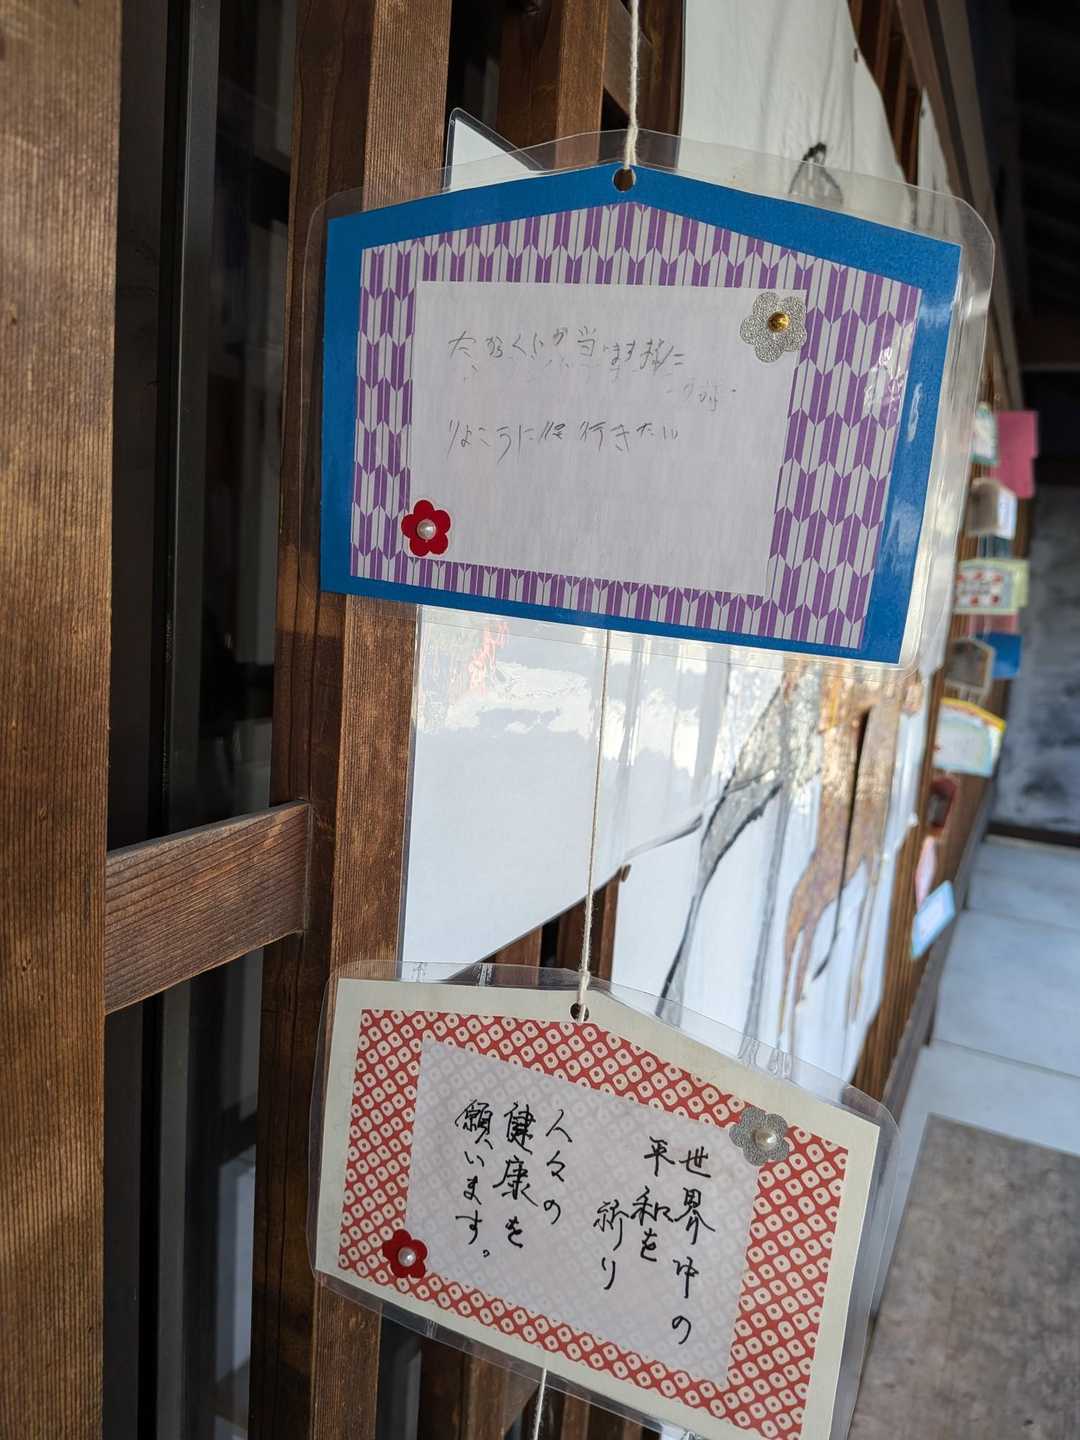 たからくじが当ります様に
りょこうに 行きたい
世界中の
平和を
祈り
人々の
健康を
願います。